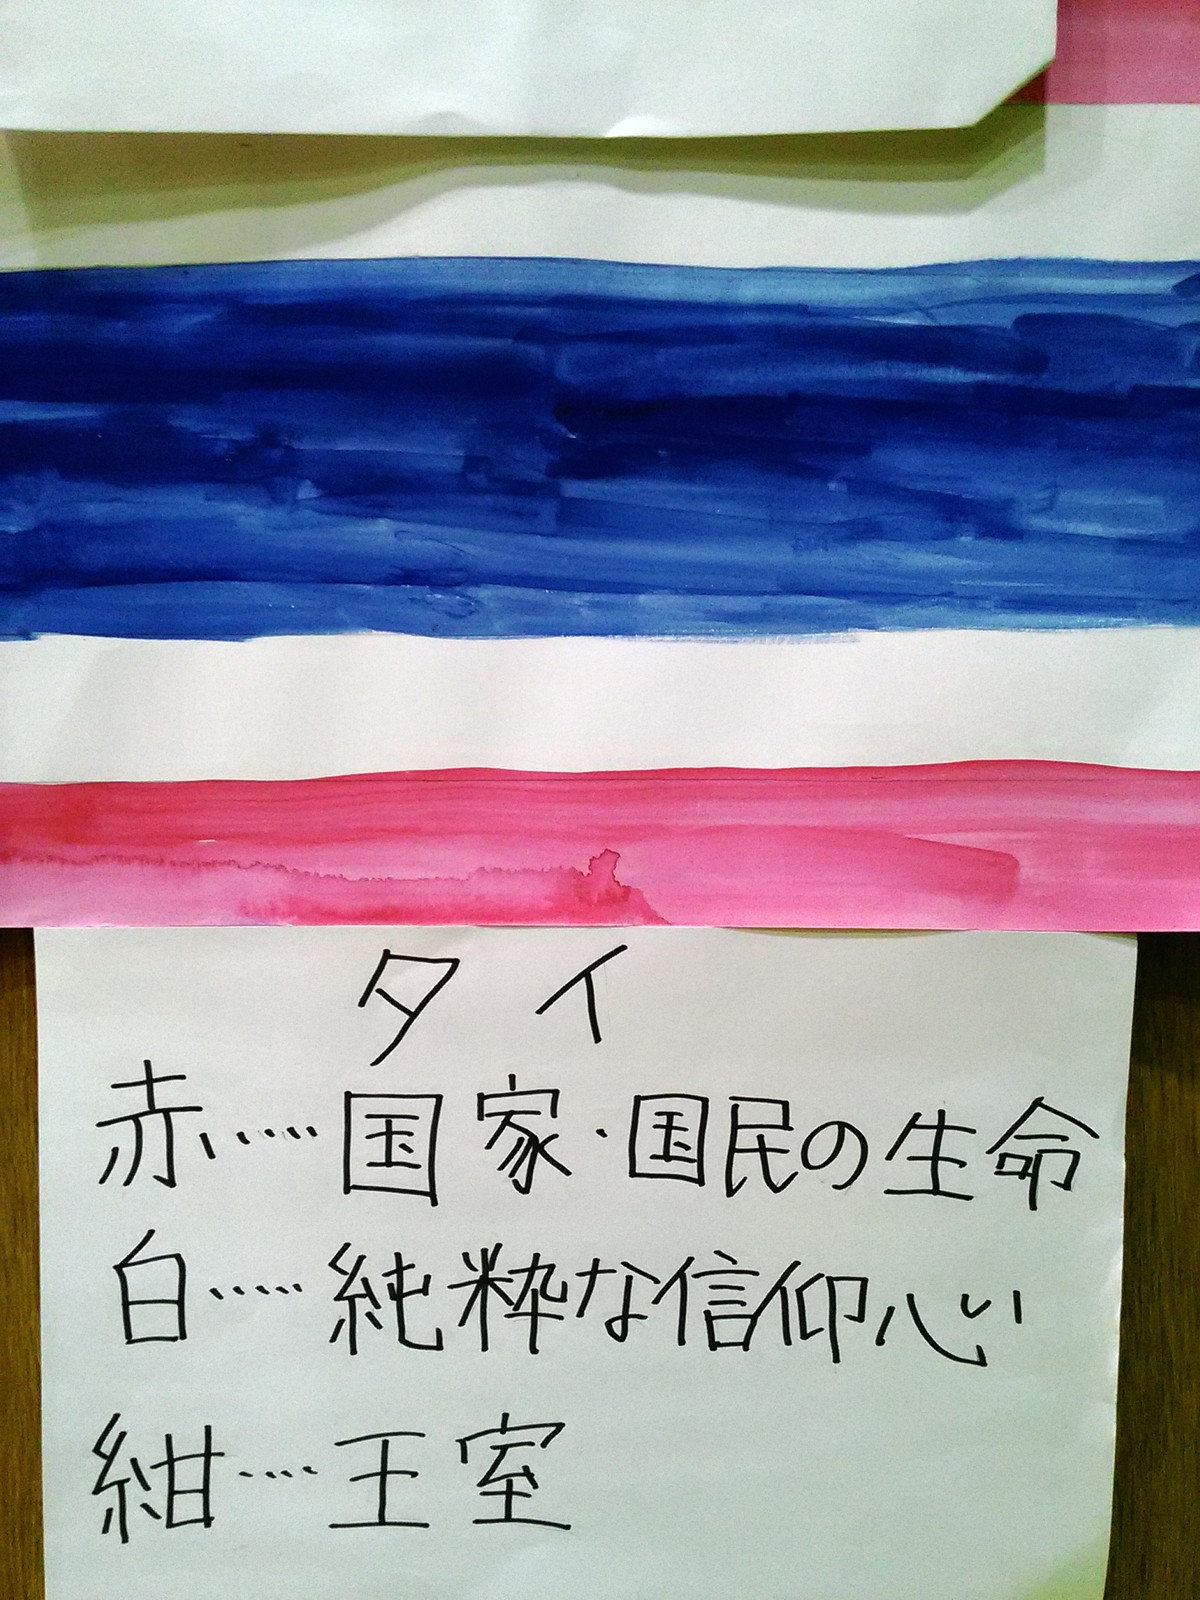 タイ
赤‥‥国家・国民の生命
白‥‥‥純粋な信仰心
紺‥‥王室